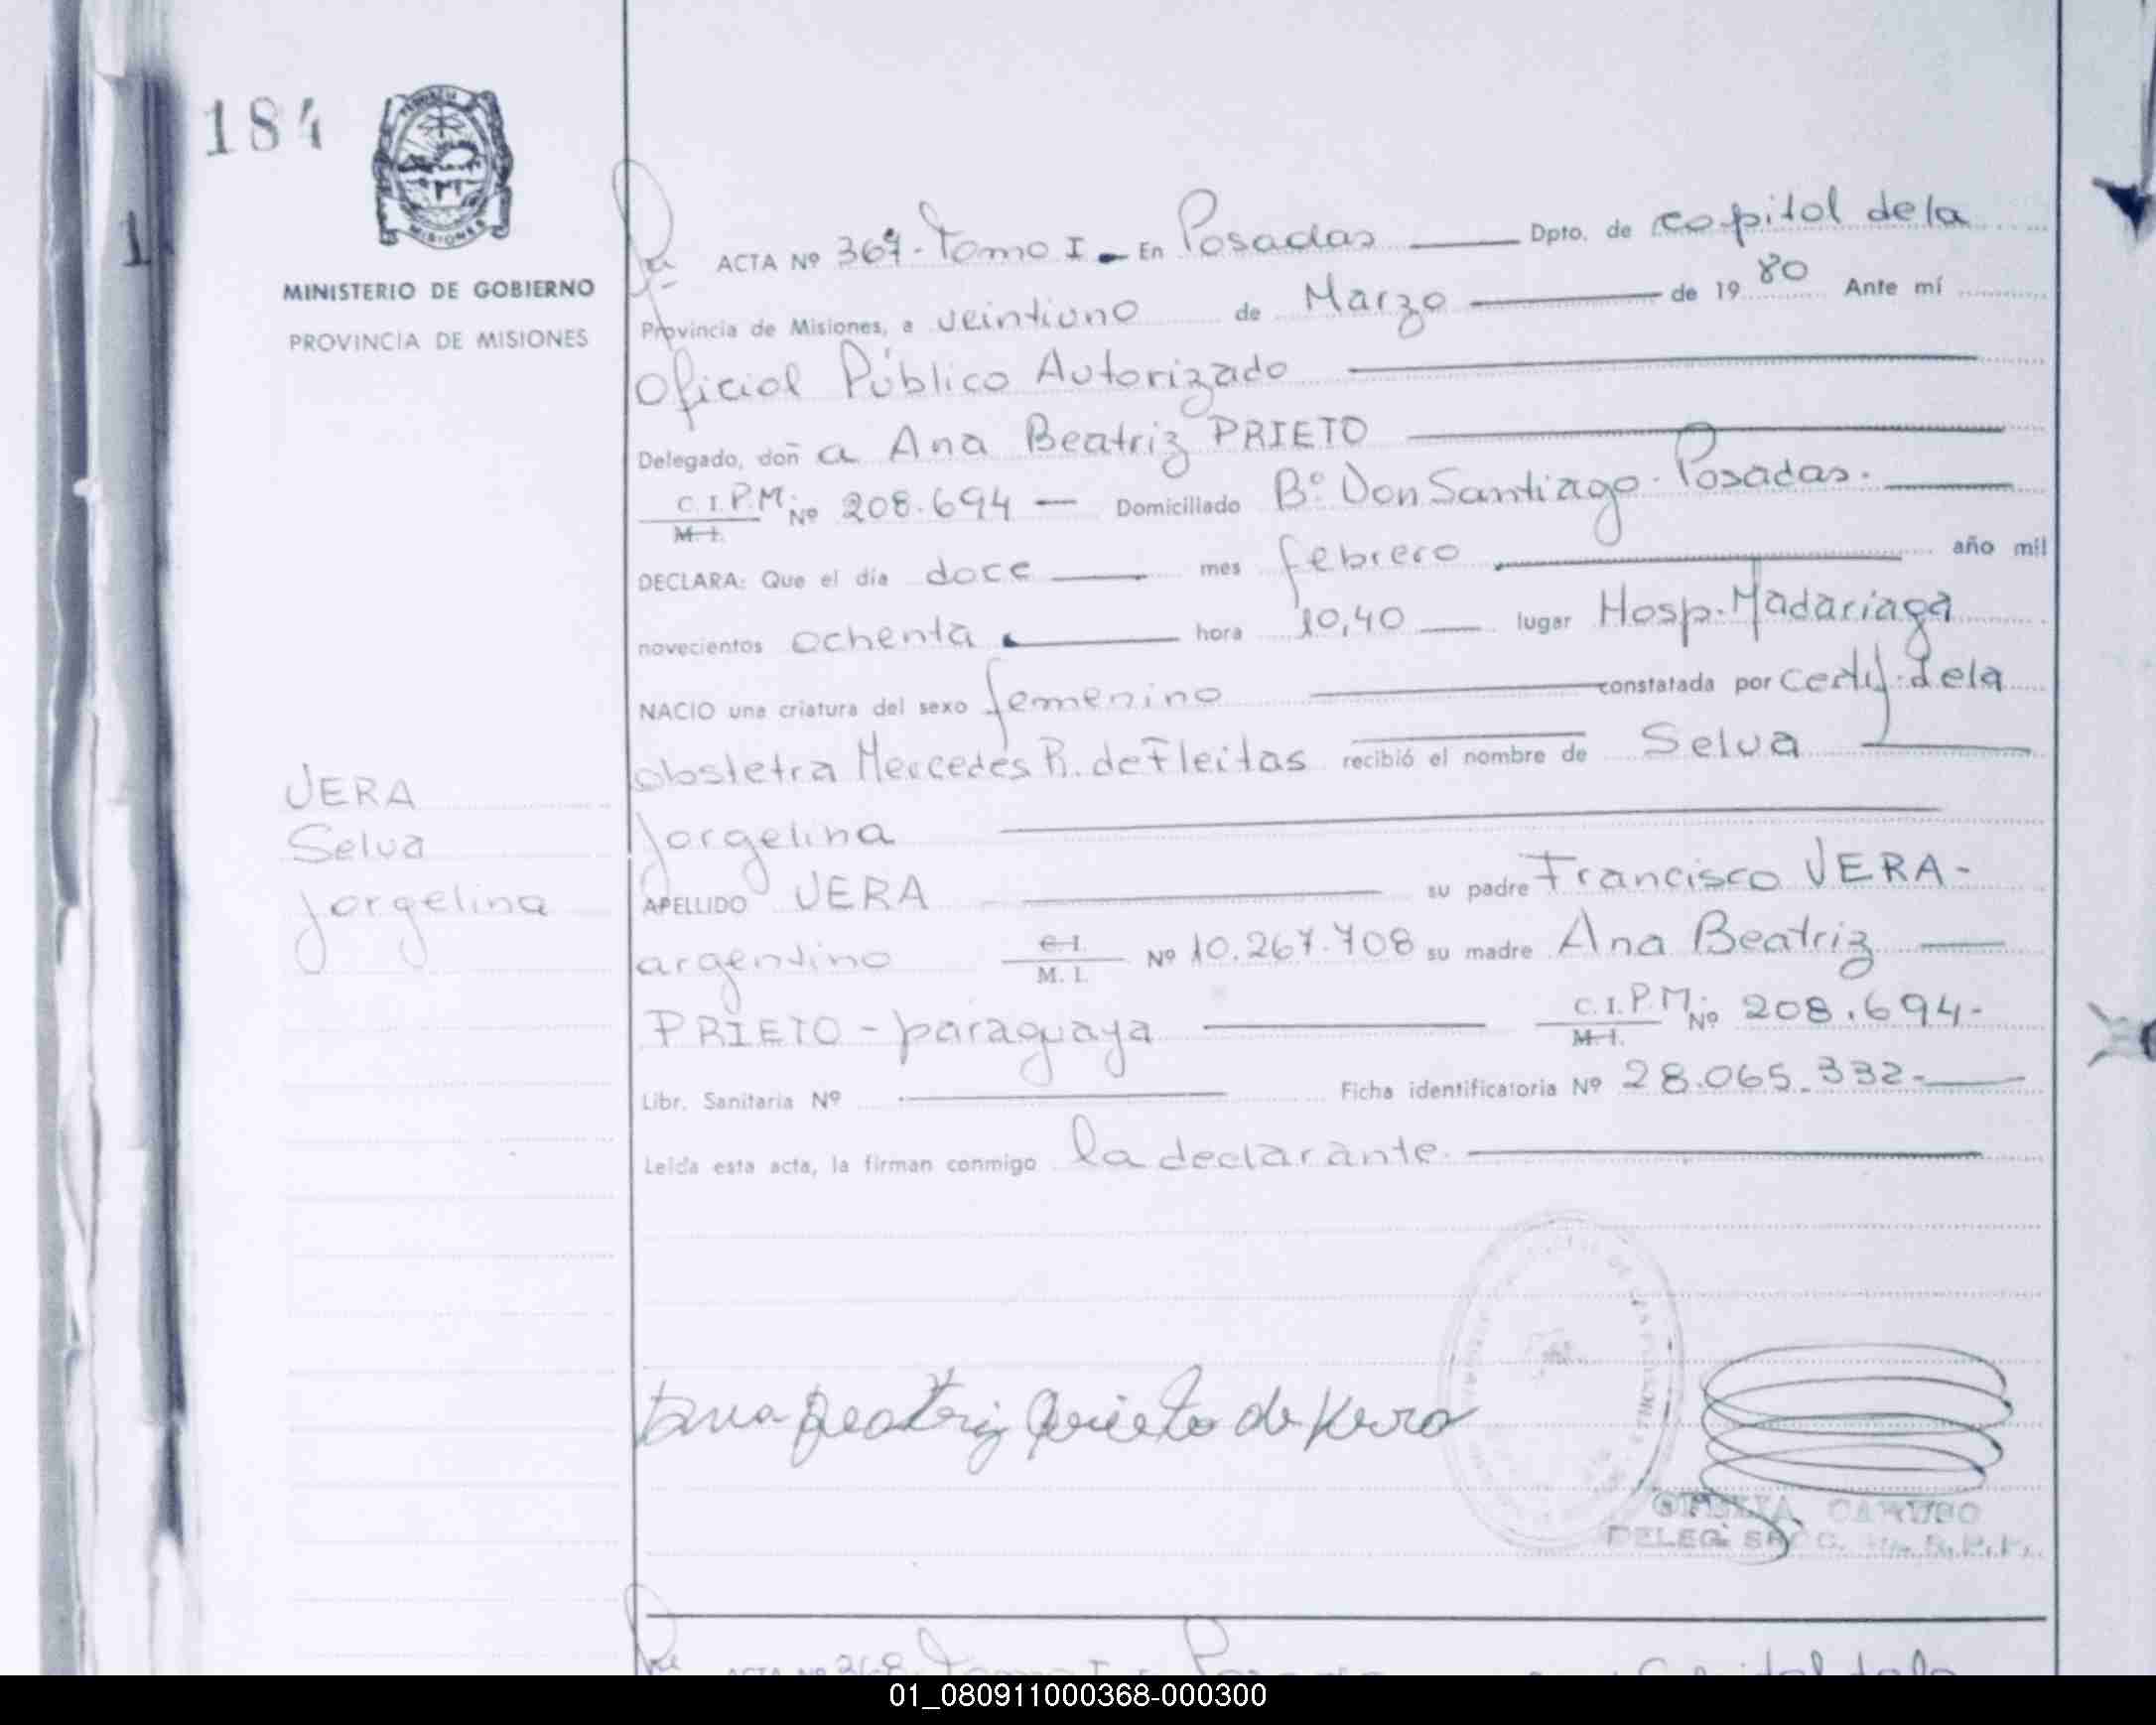 184
MISIONES
1
MINISTERIO DE GOBIERNO
PROVINCIA DE MISIONES
ACTA Nº 367 - Tomo I - En Posadas Dpto. de capital de la
Provincia de Misiones, a veintiuno de Marzo de 1980 Ante mí
Oficial Público Autorizado
Delegado, doña Ana Beatriz PRIETO
C.I.P.M. Nº 208.694 — Domiciliado Bº Don Santiago - Posadas.
M. I.
DECLARA: Que el día doce mes febrero año mil
novecientos ochenta hora 10,40 lugar Hosp. Madariaga
NACIO una criatura del sexo femenino constatada por certif. de la
obstetra Mercedes R. de Fleitas recibió el nombre de Selva
Jorgelina
VERA
Selva
Jorgelina
APELLIDO VERA su padre Francisco VERA -
argentino C. I. Nº 10.267.708 su madre Ana Beatriz
M. I.
PRIETO - paraguaya C.I.P.M. Nº 208.694-
M. I.
Libr. Sanitaria Nº Ficha identificatoria Nº 28.065.332-
Leída esta acta, la firman conmigo la declarante.
Ana Beatriz Prieto de Vera
CARUSO
DELEG.
ACTA Nº 368 Tomo I Posadas Capital de la
01_080911000368-000300